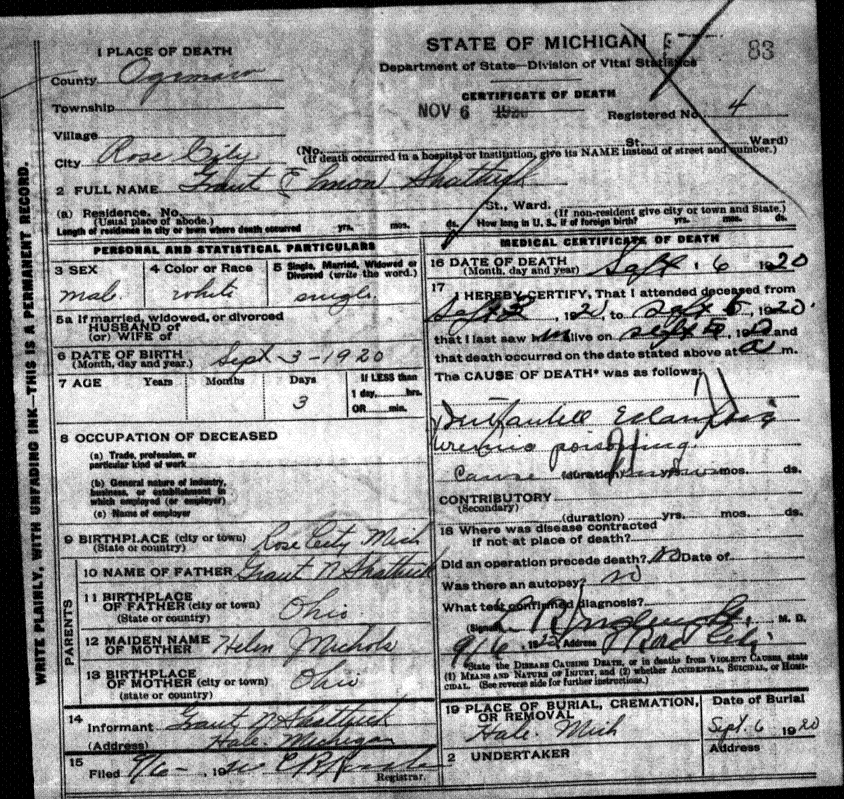 WRITE PLAINLY, WITH UNFADING INK—THIS IS A PERMANENT RECORD.
STATE OF MICHIGAN
83
Department of State—Division of Vital Statistics
CERTIFICATE OF DEATH
NOV 6 1920
Registered No. 4
1 PLACE OF DEATH
County Ogemaw
Township
Village
City Rose City (No. St. Ward)
(If death occurred in a hospital or institution, give its NAME instead of street and number.)
2 FULL NAME Grant Shattuck
(a) Residence, No. St., Ward.
(Usual place of abode.) (If non-resident give city or town and State.)
Length of residence in city or town where death occurred yrs. mos. ds. How long in U. S., if of foreign birth? yrs. mos. ds.
PERSONAL AND STATISTICAL PARTICULARS
3 SEX
male
4 Color or Race
white
5 Single, Married, Widowed or Divorced (write the word.)
single
5a If married, widowed, or divorced
HUSBAND of
(or) WIFE of
6 DATE OF BIRTH Sept-3-1920
(Month, day and year.)
7 AGE Years Months Days If LESS than
3 1 day, hrs.
OR min.
8 OCCUPATION OF DECEASED
(a) Trade, profession, or
particular kind of work
(b) General nature of industry,
business, or establishment in
which employed (or employer)
(c) Name of employer
9 BIRTHPLACE (city or town) Rose City Mich
(State or country)
PARENTS
10 NAME OF FATHER Grant N Shattuck
11 BIRTHPLACE
OF FATHER (city or town) Ohio
(State or country)
12 MAIDEN NAME
OF MOTHER Helen Nichols
13 BIRTHPLACE
OF MOTHER (city or town) Ohio
(state or country)
14
Informant Grant N Shattuck
(Address) Hale Michigan
15
Filed 9/6- , 19 Registrar.
MEDICAL CERTIFICATE OF DEATH
16 DATE OF DEATH Sept. 6 1920
(Month, day and year)
17
I HEREBY CERTIFY, That I attended deceased from
Sept 2, 1920, to Sept 5, 1920.
that I last saw him alive on Sept, 19 and
that death occurred on the date stated above at a m.
The CAUSE OF DEATH* was as follows:
uremic poisoning
Cause (duration) yrs. mos. ds.
CONTRIBUTORY
(Secondary)
(duration) yrs. mos. ds.
18 Where was disease contracted
if not at place of death?
Did an operation precede death? no Date of
Was there an autopsy? no
What test confirmed diagnosis?
(Signed) M. D.
9/6, 1920 Address Rose City
*State the DISEASE CAUSING DEATH, or in deaths from VIOLENT CAUSES, state
(1) MEANS AND NATURE OF INJURY, and (2) whether ACCIDENTAL, SUICIDAL, or HOMI-
CIDAL. (See reverse side for further instructions.)
19 PLACE OF BURIAL, CREMATION,
OR REMOVAL
Hale Mich
Date of Burial
Sept. 6 1920
2 UNDERTAKER
Address